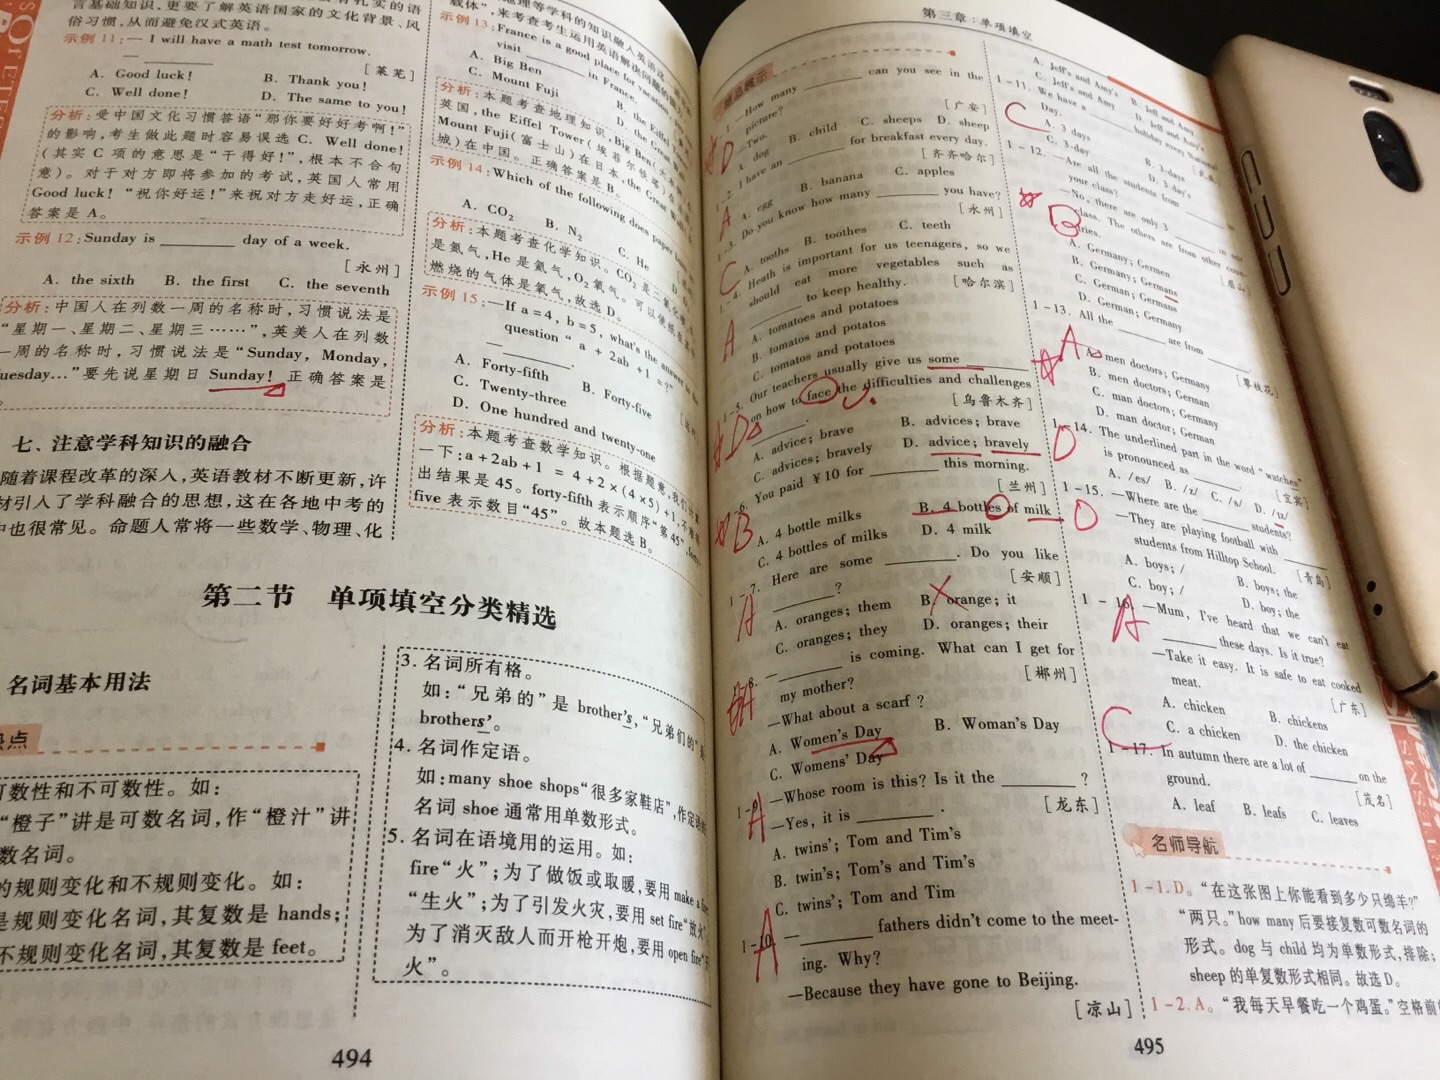 言基础知识,更要了解英语国家的文化背景、风
俗习惯,从而避免汉式英语。
示例 11:— I will have a math test tomorrow.
—
[莱芜]
A. Good luck! B. Thank you!
C. Well done! D. The same to you!
分析:受中国文化习惯答语“那你要好好考啊!”
的影响,考生做此题时容易误选 C. Well done!
(其实 C 项的意思是“干得好!”,根本不合句
意)。对于对方即将参加的考试,英国人常用
Good luck! “祝你好运!”来祝对方走好运,正确
答案是 A。
示例 12:Sunday is ________ day of a week.
[永州]
A. the sixth B. the first C. the seventh
分析:中国人在列数一周的名称时,习惯说法是
“星期一、星期二、星期三……”,英美人在列数
一周的名称时,习惯说法是“Sunday, Monday,
Tuesday...”要先说星期日 Sunday! 正确答案是
七、注意学科知识的融合
随着课程改革的深入,英语教材不断更新,许
材引入了学科融合的思想,这在各地中考的
也很常见。命题人常将一些数学、物理、化
地理等学科的知识融入英语这
载体”,来考查考生运用英语解决问题的
示例 13:France is a good place for vacation.
visit ________ in France.
A. Big Ben B. the Eiffel
C. Mount Fuji D. the Great
分析:本题考查地理知识。Big Ben(
英国,the Eiffel Tower(埃菲尔铁塔)
Mount Fuji(富士山)在日本,the Great Wall(
城)在中国。正确答案是 B。
示例 14:Which of the following does
A. CO₂ B. N₂ C. He
分析:本题考查化学知识。CO₂是二氧化
是氮气,He 是氦气,O₂氧气。可以使
燃烧的气体是氧气,故选 D。
示例 15:—If a = 4, b = 5, what's the answer to the
question “ a + 2ab + 1 = ?”
— ________.
A. Forty-fifth B. Forty-five
C. Twenty-three
D. One hundred and twenty-one
分析:本题考查数学知识。根据题意,我们计算
一下:a + 2ab + 1 = 4 + 2 × (4 × 5) + 1,不难
出结果是 45。forty-fifth 表示顺序“第 45”,forty-
five 表示数目“45”。故本题选 B。
第二节 单项填空分类精选
名词基本用法
热点
可数性和不可数性。如:
“橙子”讲是可数名词,作“橙汁”讲
数名词。
的规则变化和不规则变化。如:
是规则变化名词,其复数是 hands;
不规则变化名词,其复数是 feet。
3. 名词所有格。
如:“兄弟的”是 brother's,“兄弟们的”是
brothers'。
4. 名词作定语。
如:many shoe shops“很多家鞋店”,作定语的
名词 shoe 通常用单数形式。
5. 名词在语境用的运用。如:
fire“火”;为了做饭或取暖,要用 make a fire
“生火”;为了引发火灾,要用 set fire“放火”;
为了消灭敌人而开枪开炮,要用 open fire“开
火”。
494
第三章:单项填空
精品展示
1 - 1. —How many ________ can you see in the
picture?
[广安]
—Two.
A. dog B. child C. sheeps D. sheep
D
1 - 2. I have an ________ for breakfast every day.
[齐齐哈尔]
A. egg B. banana C. apples
A
1 - 3. Do you know how many ________ you have?
[永州]
A. tooths B. toothes C. teeth
C
1 - 4. Heath is important for us teenagers, so we
should eat more vegetables such as
________ to keep healthy. [哈尔滨]
A. tomatoes and potatoes
B. tomatoes and potatos
C. tomatos and potatoes
A
1 - 5. Our teachers usually give us some ________
on how to face the difficulties and challenges
________. [乌鲁木齐]
A. advice; brave B. advices; brave
C. advices; bravely D. advice; bravely
D
1 - 6. You paid ¥10 for ________ this morning.
[兰州]
A. 4 bottle milks B. 4 bottles of milk
C. 4 bottles of milks D. 4 milk
B
1 - 7. Here are some ________. Do you like
________? [安顺]
A. oranges; them B. orange; it
C. oranges; they D. oranges; their
A
1 - 8. —________ is coming. What can I get for
my mother? [郴州]
—What about a scarf ?
A. Women's Day B. Woman's Day
C. Womens' Day
A
1 - 9. —Whose room is this? Is it the ________ ?
—Yes, it is ________ . [龙东]
A. twins'; Tom and Tim's
B. twin's; Tom's and Tim's
C. twins'; Tom and Tim
A
1 - 10. —________ fathers didn't come to the meet-
ing. Why?
—Because they have gone to Beijing.
[凉山]
A
A. Jeff's and Amy's B. Jeff and Amy
C. Jeff's and Amy D. Jeff and Amy's
1 - 11. We have a ________ holiday every National
Day.
A. 3 days B. 3-days
C. 3-day D. 3 day's
C
1 - 12. —Are all the students from ________ in
your class? [眉山]
—No, there are only 3 ________ in our
class. The others are from other coun-
tries.
A. Germany; Germen
B. Germany; Germans
C. German; Germans
D. German; Germany
B
1 - 13. All the ________ are from ________.
[攀枝花]
A. men doctors; Germany
B. men doctors; German
C. man doctors; Germany
D. man doctor; German
A
1 - 14. The underlined part in the word “watches”
is pronounced as ________. [宜宾]
A. /es/ B. /z/ C. /s/ D. /ɪz/
D
1 - 15. —Where are the ________ students?
—They are playing football with ________
students from Hilltop School. [青岛]
A. boys; / B. boys; the
C. boy; / D. boy; the
D
1 - 16. —Mum, I've heard that we can't eat
________ these days. Is it true?
—Take it easy. It is safe to eat cooked
meat. [广东]
A. chicken B. chickens
C. a chicken D. the chicken
A
1 - 17. In autumn there are a lot of ________ on the
ground. [茂名]
A. leaf B. leafs C. leaves
C
名师导航
1 - 1. D。“在这张图上你能看到多少只绵羊?”
“两只。”how many 后要接复数可数名词的
形式。dog 与 child 均为单数形式,排除;
sheep 的单复数形式相同。故选 D。
1 - 2. A。“我每天早餐吃一个鸡蛋。”空格前
495